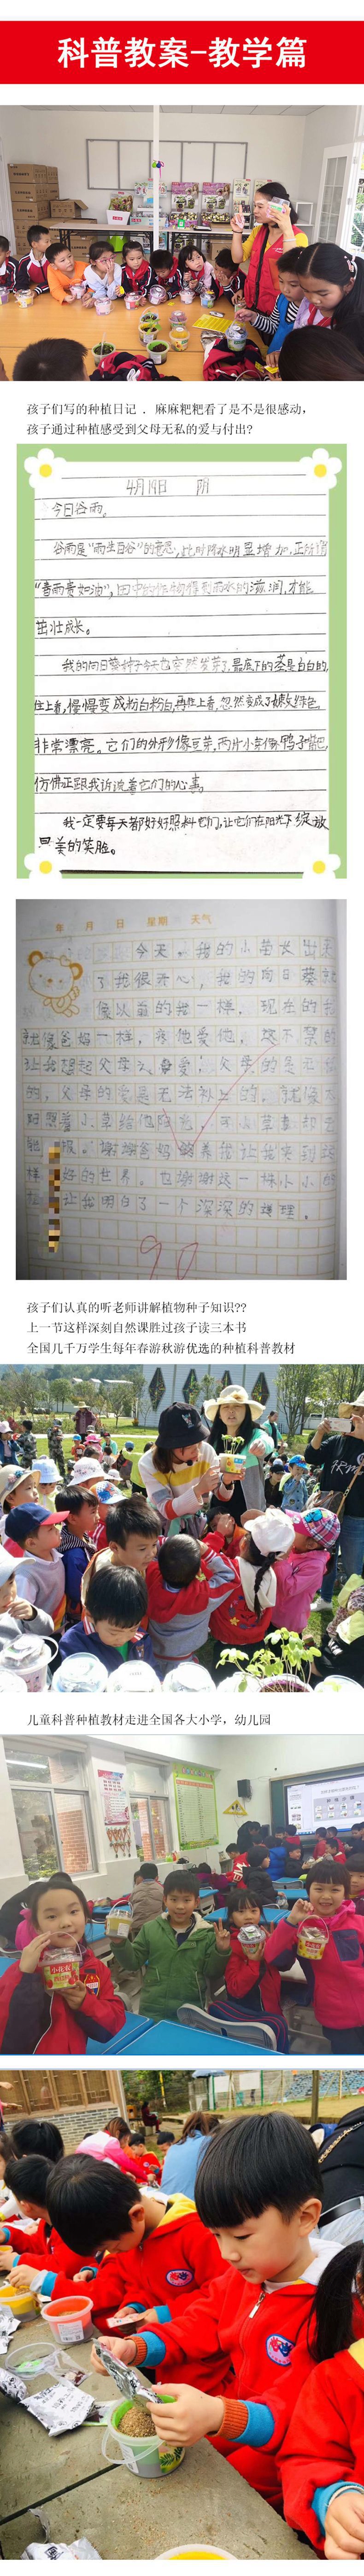 科普教案-教学篇
孩子们写的种植日记 . 麻麻粑粑看了是不是很感动，
孩子通过种植感受到父母无私的爱与付出?
4月19日 阴
今日谷雨。
谷雨是“雨生百谷”的意思，此时降水明显增加，正所谓
“春雨贵如油”，田中的作物得到雨水的滋润，才能
茁壮成长。
我的向日葵种子今天也突然发芽了，最底下的茎是白白的，
往上看，慢慢变成粉白粉白，再往上看，忽然变成了嫩绿色，
非常漂亮。它们的外形像豆芽，两片小芽像鸭子嘴巴，
仿佛正跟我诉说着它们的心事。
我一定要每天都好好照料它们，让它们在阳光下绽放
最美的笑脸。
年 月 日 星期 天气
今天，我的小苗长出来
了我很开心，我的向日葵就
像以前的我一样，现在的我
就像爸妈一样，疼他爱他，
让我想起父母 父母的爱是无
的，父母的爱是无法补上的，就像太
阳照着小草给他阳光，
谢谢爸妈 养我让我来到这
样 好的世界。也谢谢这一株小小的
让我明白了一个深深的道理。
90
孩子们认真的听老师讲解植物种子知识??
上一节这样深刻自然课胜过孩子读三本书
全国几千万学生每年春游秋游优选的种植科普教材
儿童科普种植教材走进全国各大小学，幼儿园
小花农